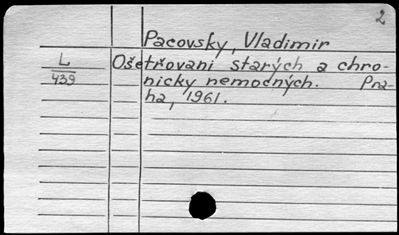 2
Pacovsky, Vladimir
L Ošetřovani starých a chro-
439 nicky nemocných. Pra-
ha, 1961.